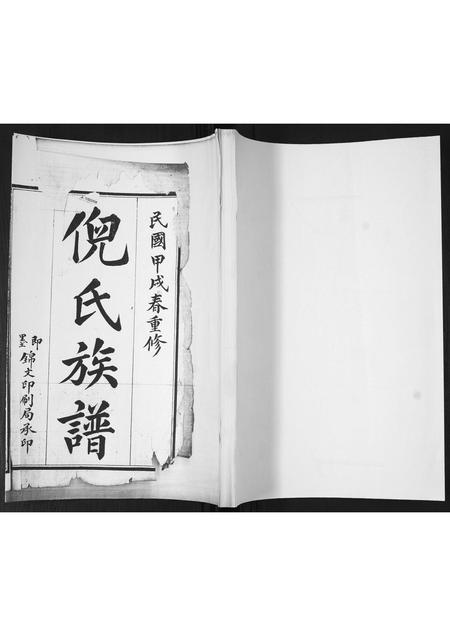 民國甲戌春重修
倪氏族譜
即墨錦文印刷局承印